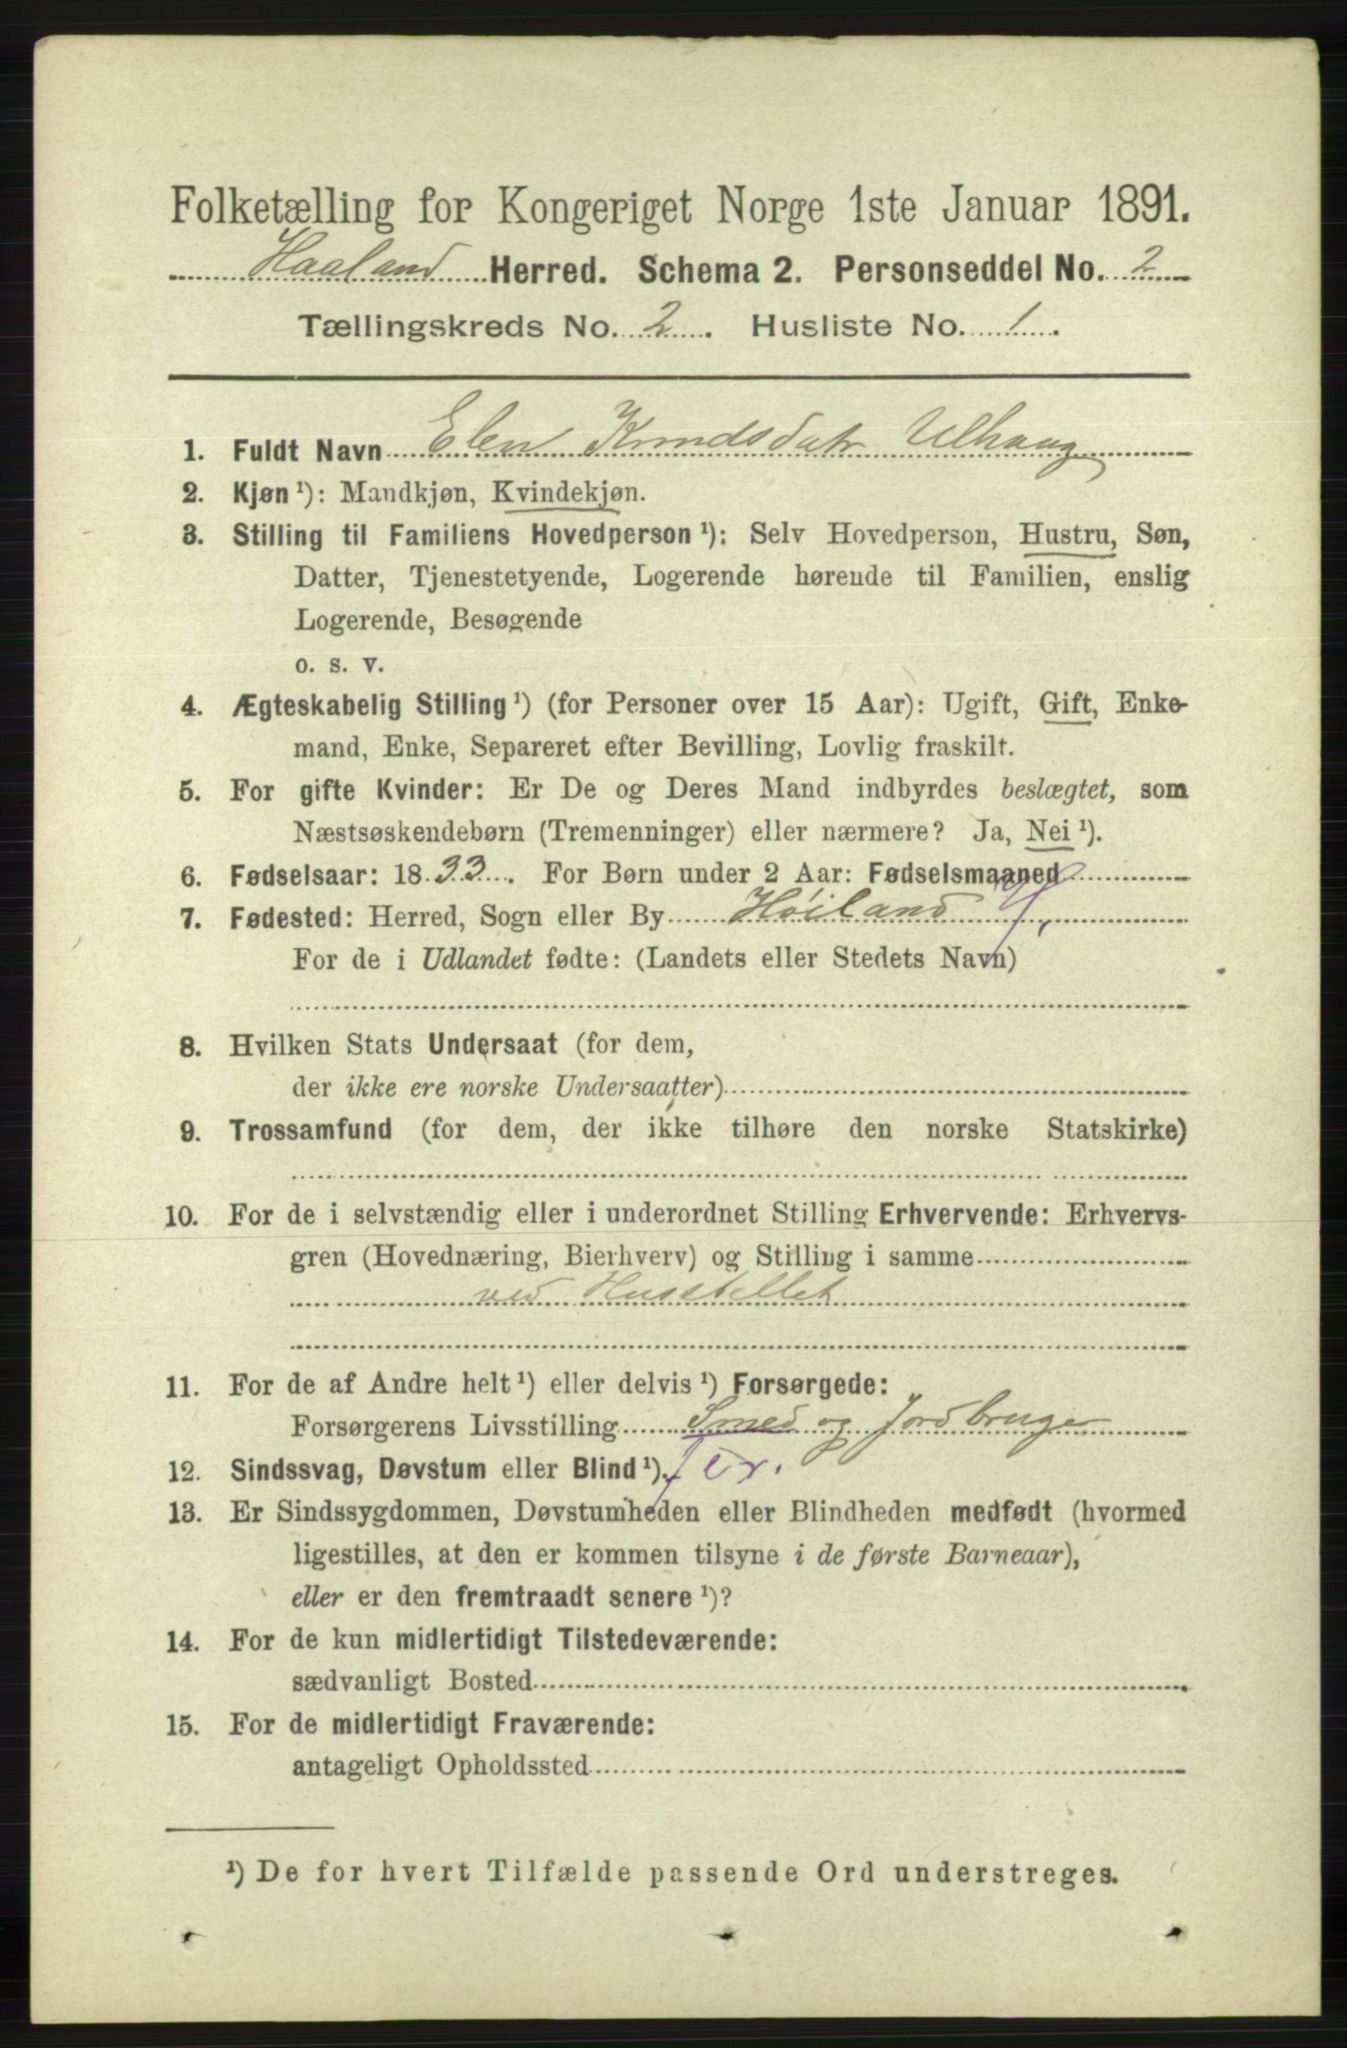 Folketælling for Kongeriget Norge 1ste Januar 1891.
Haaland Herred. Schema 2. Personseddel No. 2
Tællingskreds No. 2. Husliste No. 1.
1. Fuldt Navn Elen Knudsdatr Ulhaug
2. Kjøn ¹): Mandkjøn, Kvindekjøn.
3. Stilling til Familiens Hovedperson ¹): Selv Hovedperson, Hustru, Søn,
Datter, Tjenestetyende, Logerende hørende til Familien, enslig
Logerende, Besøgende
o. s. v.
4. Ægteskabelig Stilling ¹) (for Personer over 15 Aar): Ugift, Gift, Enke-
mand, Enke, Separeret efter Bevilling, Lovlig fraskilt.
5. For gifte Kvinder: Er De og Deres Mand indbyrdes beslægtet, som
Næstsøskendebørn (Tremenninger) eller nærmere? Ja, Nei ¹).
6. Fødselsaar: 1833. For Børn under 2 Aar: Fødselsmaaned
7. Fødested: Herred, Sogn eller By Høiland
For de i Udlandet fødte: (Landets eller Stedets Navn)
8. Hvilken Stats Undersaat (for dem,
der ikke ere norske Undersaatter)
9. Trossamfund (for dem, der ikke tilhøre den norske Statskirke)
10. For de i selvstændig eller i underordnet Stilling Erhvervende: Erhvervs-
gren (Hovednæring, Bierhverv) og Stilling i samme
ved Husstellet
11. For de af Andre helt ¹) eller delvis ¹) Forsørgede:
Forsørgerens Livsstilling Smed og Jordbruger
12. Sindssvag, Døvstum eller Blind ¹).
13. Er Sindssygdommen, Døvstumheden eller Blindheden medfødt (hvormed
ligestilles, at den er kommen tilsyne i de første Barneaar),
eller er den fremtraadt senere ¹)?
14. For de kun midlertidigt Tilstedeværende:
sædvanligt Bosted
15. For de midlertidigt Fraværende:
antageligt Opholdssted
¹) De for hvert Tilfælde passende Ord understreges.